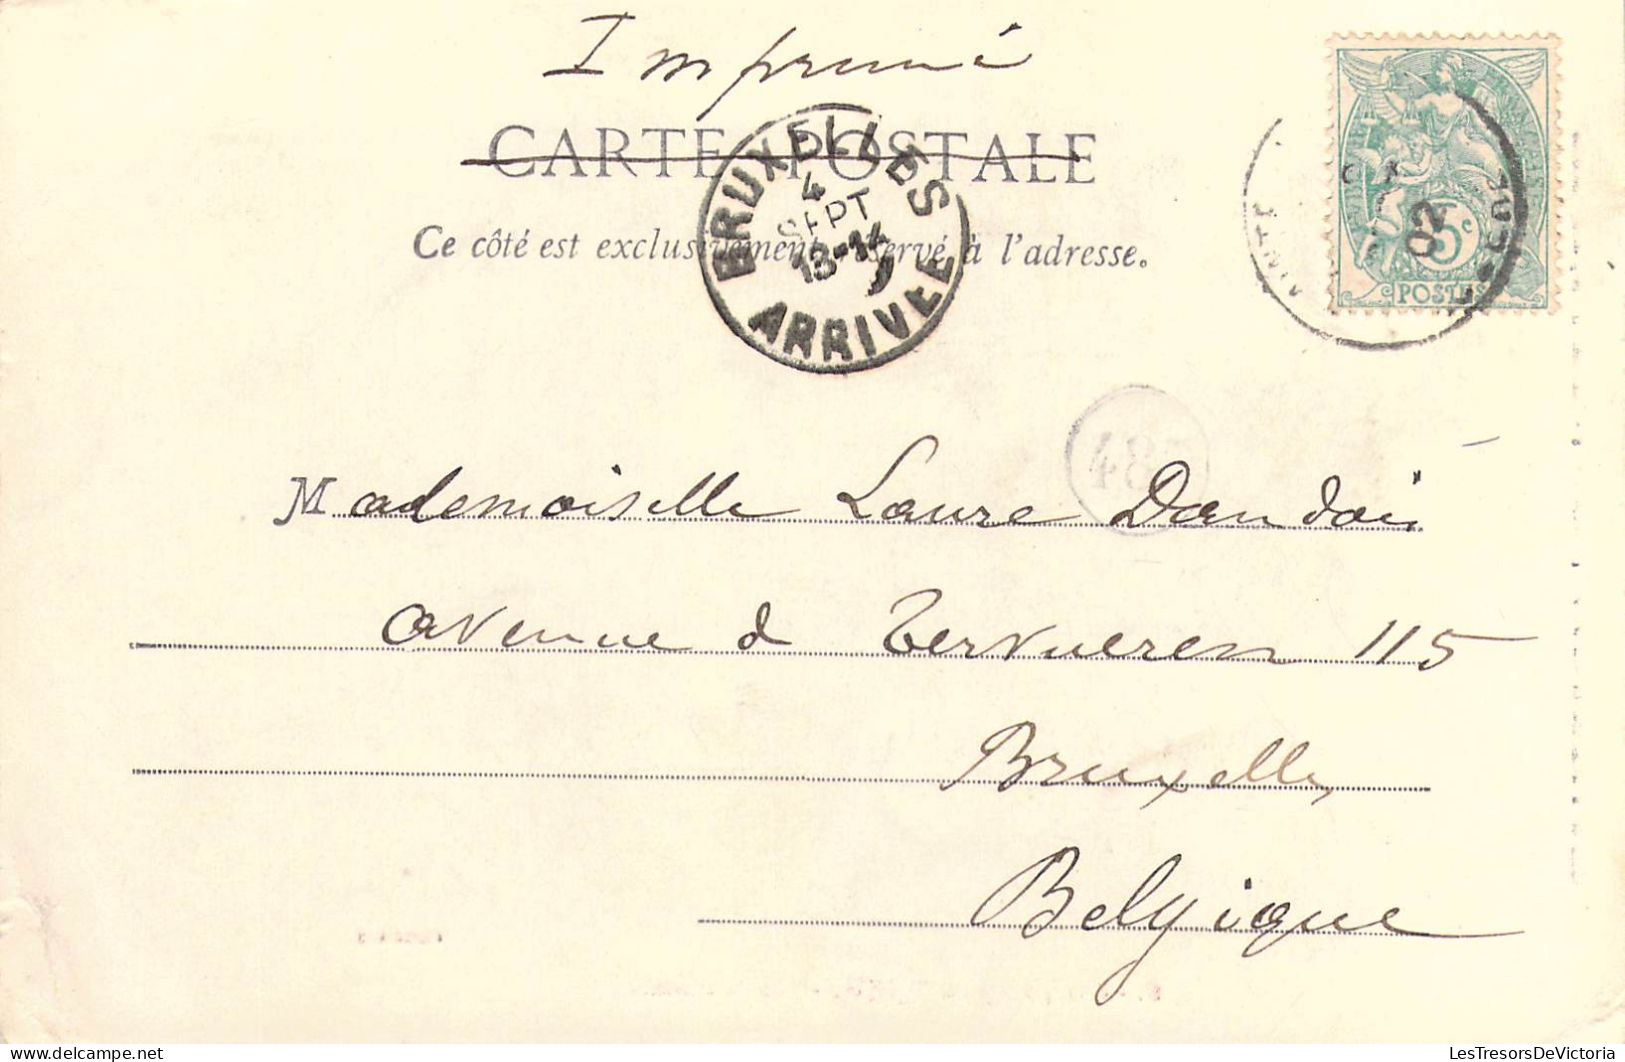 Imprimé
CARTE POSTALE
Ce côté est exclusivement réservé à l'adresse.
BRUXELLES
4
SEPT
13-14
ARRIVEE
02
5c
POSTES
84
Mademoiselle Laure Dandois
avenue d Tervueren 115
Bruxelles
Belgique
LesTresorsDeVictoria